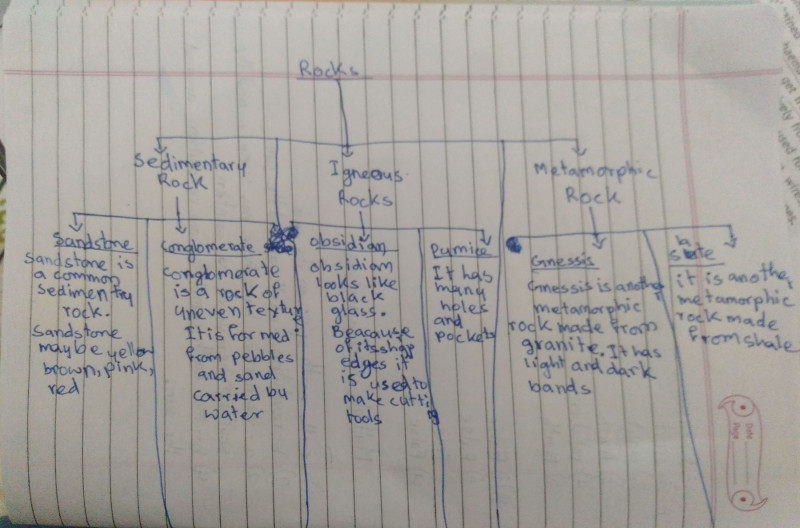 Rocks
Sedimentary
Rock
Igneous
Rocks
Metamorphic
Rock
Sandstone
Sandstone is
a common
Sedimentry
rock.
Sandstone
may be yellow
brown, pink,
red
Conglomerate
Conglomorate
is a rock of
uneven texture
It is formed
from pebbles
and sand
carried by
water
obsidian
obsidian
looks like
black
glass.
Beacause
of its sharp
edges it
is used to
make cutting
tools
Pumice
It has
many
holes
and
pockets
Gnessis
Gnessis is another
metamorphic
rock made from
granite. It has
light and dark
bands
it is another
metamorphic
rock made
from shale
Date
Page